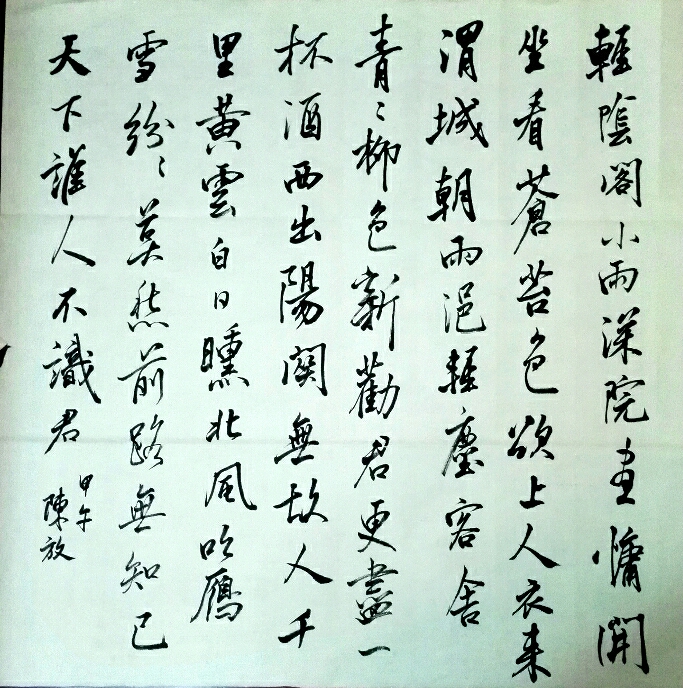 輕陰閣小雨深院晝慵開
坐看蒼苔色欲上人衣来
渭城朝雨浥輕塵客舍
青〻柳色新勸君更盡一
杯酒西出陽関無故人千
里黄雲白日曛北風吹鴈
雪紛〻莫愁前路無知己
天下誰人不識君
甲午
陳放